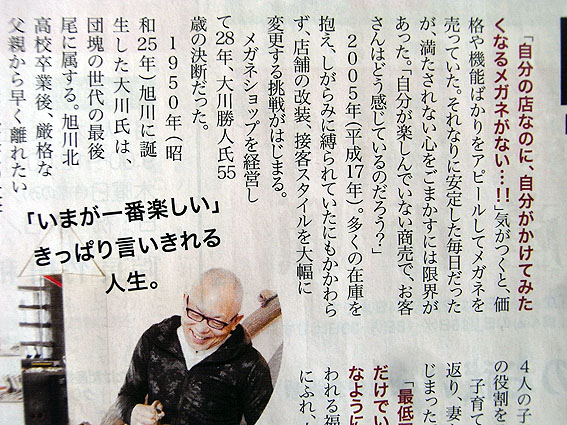 「自分の店なのに、自分がかけてみた
くなるメガネがない…!!」気がつくと、価
格や機能ばかりをアピールしてメガネを
売っていた。それなりに安定した毎日だった
が、満たされない心をごまかすには限界が
あった。「自分が楽しんでいない商売で、お客
さんはどう感じているのだろう？」
2005年（平成17年）。多くの在庫を
抱え、しがらみに縛られていたにもかかわら
ず、店舗の改装、接客スタイルを大幅に
変更する挑戦がはじまる。
メガネショップを経営し
て28年、大川勝人氏55
歳の決断だった。
1950年（昭
和25年）旭川に誕
生した大川氏は、
団塊の世代の最後
尾に属する。旭川北
高校卒業後、厳格な
父親から早く離れたい
「いまが一番楽しい」
きっぱり言いきれる
人生。
4人の子
の役割を
子育て
返り、妻
じまった
「最低
だけでい
なように
われる福
にふれ、